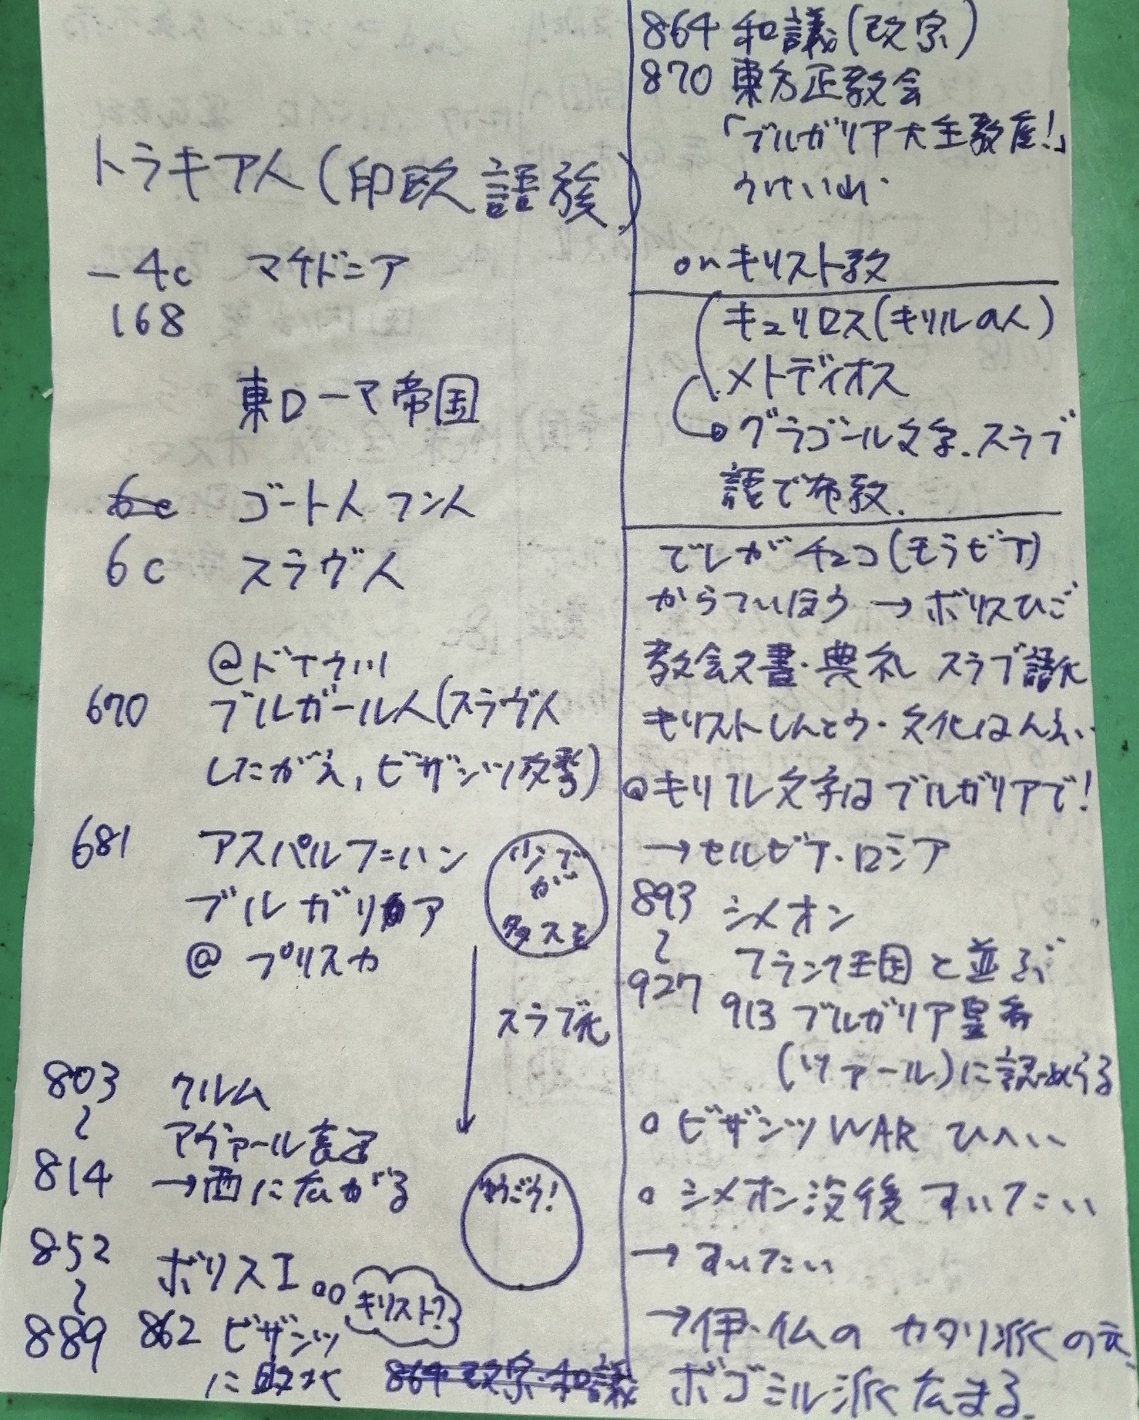 トラキア人(印欧語族)
-4c マケドニア
168
東ローマ帝国
6c ゴート人 フン人
6c スラヴ人
@ドナウ川
670 ブルガール人(スラヴ人
したがえ, ビザンツ攻撃)
681 アスパルフ=ハン
ブルガリア
@プリスカ
が
多スラ
スラブ化
803 クルム
〜 アヴァール
814 →西に広がる
ゆうごう!
852 ボリスI
〜 キリスト?
889 862 ビザンツ
に敗北 864 改宗・和議
864 和議(改宗)
870 東方正教会
「ブルガリア大主教座!」
うけいれ.
onキリスト教
キュリロス(キリルの人)
メトディオス
→グラゴール文字.スラブ
語で布教.
でしがチェコ(モラビア)
からついほう→ボリスひご
教会文書・典礼 スラブ語化
キリストしんとう・文化はんえい
@キリル文字はブルガリアで!
→セルビア・ロシア
893 シメオン
〜 フランク王国と並ぶ
927 913 ブルガリア皇帝
(ツァール)に認めらる
○ビザンツWAR ひへい
○シメオン没後 すいたい
→すいたい
→伊・仏のカタリ派の元
ボゴミル派広まる.